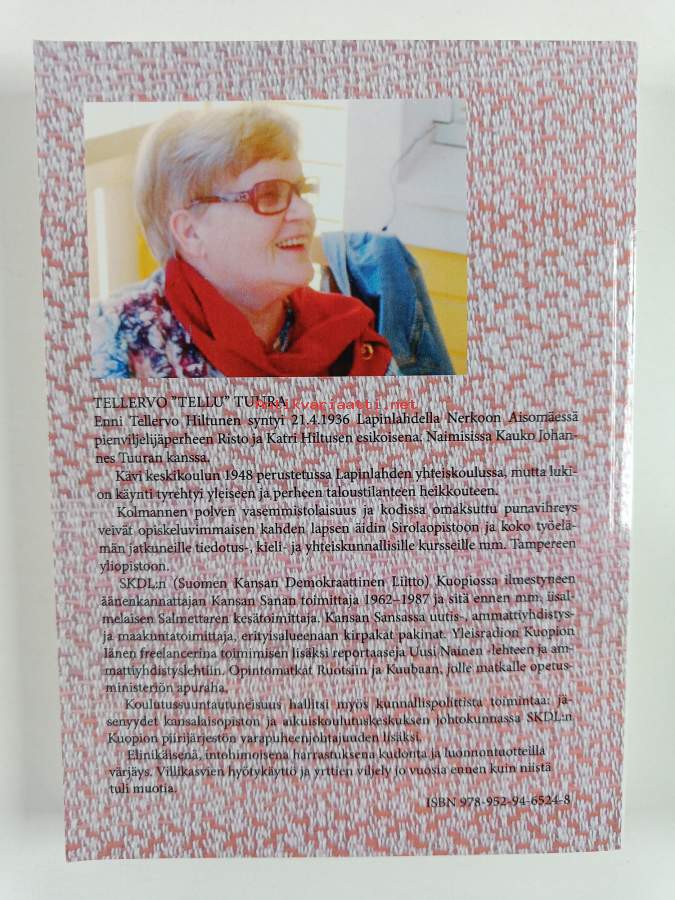 TELLERVO ”TELLU” TUURA
antikvariaatti.net
Enni Tellervo Hiltunen syntyi 21.4.1936 Lapinlahdella Nerkoon Aisomäessä
pienviljelijäperheen Risto ja Katri Hiltusen esikoisena. Naimisissa Kauko Johan-
nes Tuuran kanssa.
Kävi keskikoulun 1948 perustetussa Lapinlahden yhteiskoulussa, mutta luki-
on käynti tyrehtyi yleiseen ja perheen taloustilanteen heikkouteen.
Kolmannen polven vasemmistolaisuus ja kodissa omaksuttu punavihreys
veivät opiskeluvimmaisen kahden lapsen äidin Sirolaopistoon ja koko työelä-
män jatkuneille tiedotus-, kieli- ja yhteiskunnallisille kursseille mm. Tampereen
yliopistoon.
SKDL:n (Suomen Kansan Demokraattinen Liitto) Kuopiossa ilmestyneen
äänenkannattajan Kansan Sanan toimittaja 1962–1987 ja sitä ennen mm. iisal-
melaisen Salmettaren kesätoimittaja. Kansan Sansassa uutis-, ammattiyhdistys-
ja maakuntatoimittaja, erityisalueenaan kirpakat pakinat. Yleisradion Kuopion
länen freelancerina toimimisen lisäksi reportaaseja Uusi Nainen -lehteen ja am-
mattiyhdistyslehtiin. Opintomatkat Ruotsiin ja Kuubaan, jolle matkalle opetus-
ministeriön apuraha.
Koulutussuuntautuneisuus hallitsi myös kunnallispolittista toimintaa: jä-
senyydet kansalaisopiston ja aikuiskoulutuskeskuksen johtokunnassa SKDL:n
Kuopion piirijärjestön varapuheenjohtajuuden lisäksi.
Elinikäisenä, intohimoisena harrastuksena kudonta ja luonnontuotteilla
värjäys. Villikasvien hyötykäyttö ja yrttien viljely jo vuosia ennen kuin niistä
tuli muotia.
ISBN 978-952-94-6524-8